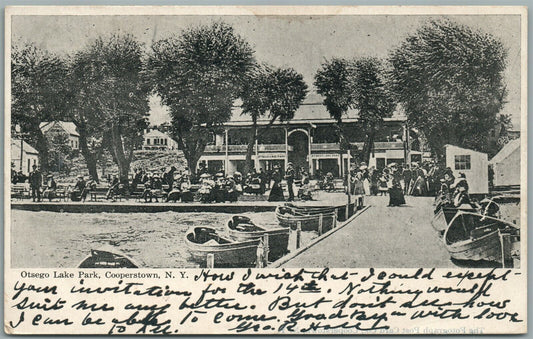 Otsego Lake Park, Cooperstown, N. Y. How I wish that I could accept
your invitation for the 14th. Nothing would
suit me any better. But don't see how
I can be able to come. Good bye - with love
to all.